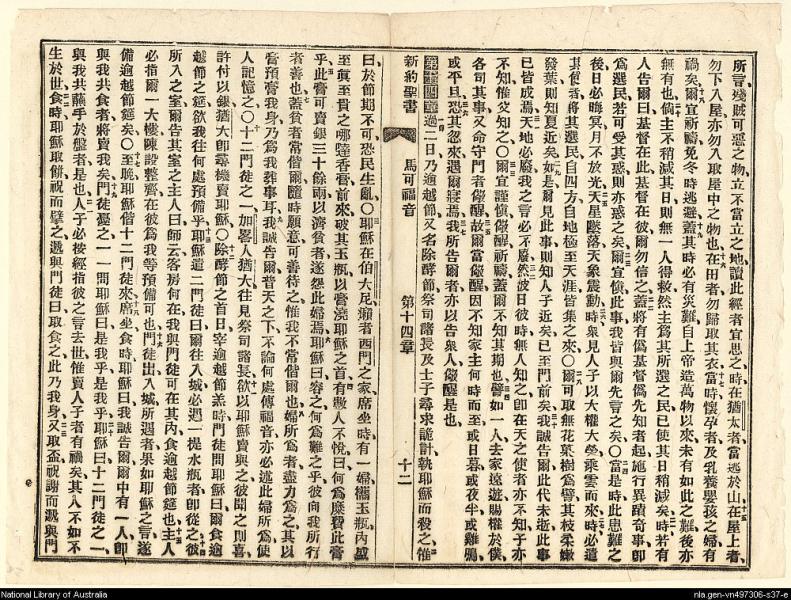 所言殘賊可惡之物立不當立之地讀此經者宜思之時在猶太者當逃於山在屋上者
勿下入屋亦勿入取屋中之物也在田者勿歸取其衣當時懷孕者及乳養嬰孩之婦有
禍矣爾宜祈禱免冬時逃避蓋其時必有災難自上帝造萬物以來未有如此之難後亦
無有也倘主不稍減其日則無一人得救然主為其所選之民已使其日稍減矣時若有
人告爾曰基督在此基督在彼爾勿信之蓋將有偽為基督偽為先知者起施行異蹟奇事即
為選民若可受其惑則亦惑之矣爾宜慎此事我皆與爾先言之矣〇當是時此患難之
後日必晦冥月不放光天星墜落天象震動時眾見人子以大權大榮乘雲而來時必遣
其使者將其選民自四方自地極至天涯皆集之來〇爾可取無花菓樹為譬其枝柔嫩
發葉則知夏近矣如是爾見此事則知人子近矣已至門前矣我誠告爾此代未逝此事
已皆成焉天地必廢我之言必不廢然彼日彼時無人知之即在天之使者亦不知子亦
不知惟父知之〇爾宜謹慎儆醒祈禱蓋爾不知其期也譬如一人去家遠遊賜權於僕
各司其事又命守門者儆醒故爾當儆醒因不知家主何時而至或日暮或夜半或雞鳴
或平旦恐其忽來遇爾寢焉我所告爾者亦以告眾人儆醒是也
第十四章過二日乃逾越節又名除酵節祭司諸長及士子尋求詭計執耶穌而殺之惟
新約聖書 馬可福音 第十四章 十二
曰於節期不可恐民生亂〇耶穌在伯大尼癩者西門之家席坐時有一婦攜玉瓶內盛
至眞至貴之哪噠香膏前來破其玉瓶以膏澆耶穌之首有數人不悅曰何為糜費此膏
乎此膏可賣銀三十餘兩以濟貧者遂怨此婦焉耶穌曰容之何為難之乎彼向我所行
者善也蓋貧者常偕爾隨時願意可善待之惟我不常偕爾也婦所為者盡力為之其以
膏預膏我身乃為我葬事耳我誠告爾普天之下不論何處傳福音亦必述此婦所為使
人記憶之〇十二門徒之一加畧人猶大往見祭司諸長欲以耶穌賣與之彼聞之則喜
許付以銀猶大卽尋機賣耶穌〇除酵節之首日宰逾越節羔時門徒問耶穌曰爾食逾
越節之筵欲我往何處預備乎耶穌遣二門徒曰爾往入城必遇一提水瓶者卽從之彼
所入之室爾告其室之主人曰師云客房何在我與門徒可在其內食逾越節筵也主人
必指爾一大樓陳設整齊在彼為我等預備可也門徒出入城所遇者果如耶穌之言遂
備逾越節筵矣〇至晚耶穌偕十二門徒來席坐食時耶穌曰我誠告爾爾中有一人卽
與我共食者將賣我矣門徒憂之一一問耶穌曰是我乎是我乎耶穌曰十二門徒之一
與我共蘸手於盤者是也人子必按經指彼之言去世惟賣人子者有禍矣其人不如不
生於世食時耶穌取餅祝而擘之遞與門徒曰取食之此乃我身又取盃祝謝而遞與門
National Library of Australia
nla.gen-vn497306-s37-e